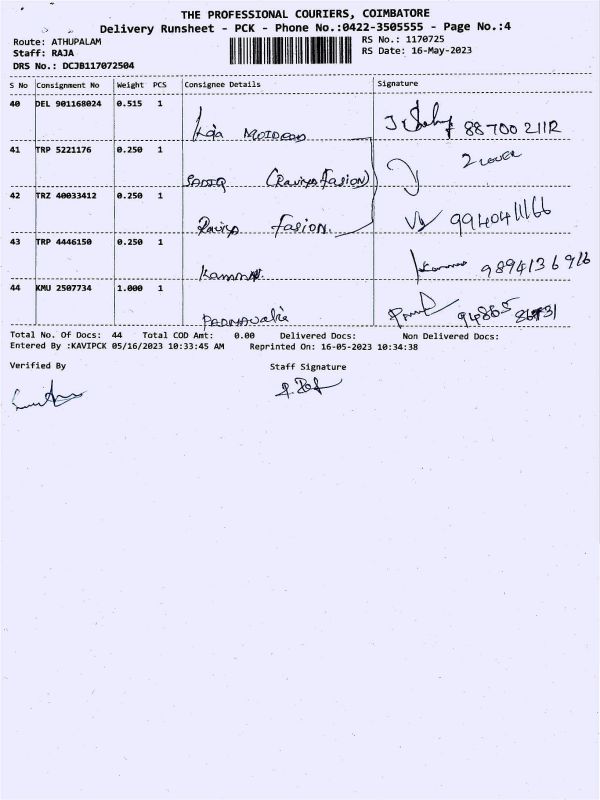 THE PROFESSIONAL COURIERS, COIMBATORE
Delivery Runsheet - PCK - Phone No.:0422-3505555 - Page No.:4
Route: ATHUPALAM RS No.: 1170725
Staff: RAJA RS Date: 16-May-2023
DRS No.: DCJB117072504
S No Consignment No Weight PCS Consignee Details Signature
40 DEL 901168024 0.515 1
MOIDEEN 88 700 2112
41 TRP 5221176 0.250 1
2 cover
SADIQ
42 TRZ 40033412 0.250 1
Fasion.
43 TRP 4446150 0.250 1
9894136916
44 KMU 2507734 1.000 1
Total No. Of Docs: 44 Total COD Amt: 0.00 Delivered Docs: Non Delivered Docs:
Entered By :KAVIPCK 05/16/2023 10:33:45 AM Reprinted On: 16-05-2023 10:34:38
Verified By Staff Signature